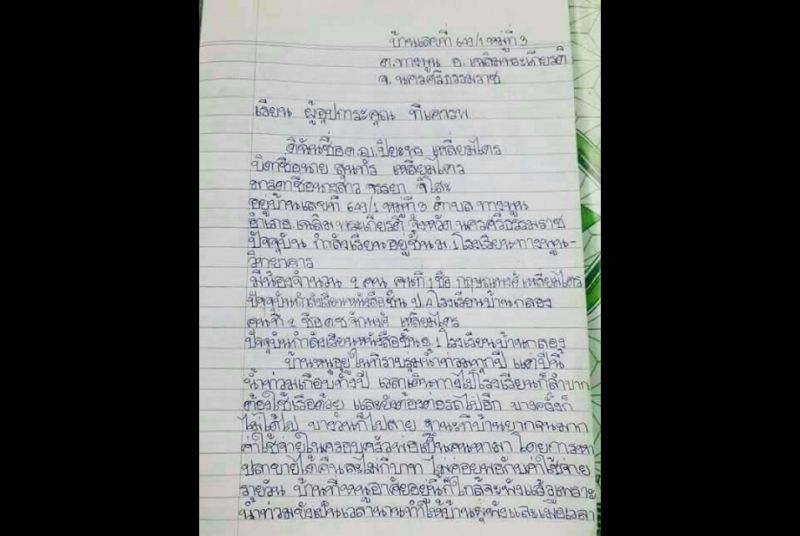 บ้านเลขที่ 643/1 หมู่ที่ 3
ต.ทางพูน อ.เฉลิมพระเกียรติ
จ.นครศรีธรรมราช
เรียน ผู้อุปการะคุณ ที่เคารพ
ดิฉันชื่อ ด.ญ. ปิยะนุช เหลี่ยมไตร
บิดาชื่อนาย สุนทร เหลี่ยมไตร
มารดาชื่อนางสาว จรรยา
อยู่บ้านเลขที่ 643/1 หมู่ที่ 3 ตำบล ทางพูน
อำเภอ เฉลิมพระเกียรติ จังหวัด นครศรีธรรมราช
ปัจจุบัน กำลังเรียนอยู่ชั้น ม.1 โรงเรียนทางพูน-
วิทยาคาร
มีน้องจำนวน 2 คน คนที่ 1 ชื่อ เหลี่ยมไตร
ปัจจุบันกำลังเรียนหนังสือชั้น ป.4 โรงเรียนบ้านกลอง
คนที่ 2 ชื่อ ด.ช. เหลี่ยมไตร
ปัจจุบันกำลังเรียนหนังสือชั้น อ.1 โรงเรียนบ้านกลอง
บ้านหนูอยู่ในที่ราบลุ่มน้ำท่วมทุกปี แต่ปีนี้
น้ำท่วมเกือบทั้งปี เวลาเดินทางไปโรงเรียนก็ลำบาก
ต้องใช้เรือด้วย และยังต้องต่อรถไปอีก บางครั้งก็
ไม่ได้ไป บางวันก็ไปสาย ฐานะที่บ้านยากจนมาก
ค่าใช้จ่ายในครอบครัวพ่อเป็นคนหามา โดยการหา
ปลาขายได้คืนละไม่กี่บาท ไม่ค่อยพอกับค่าใช้จ่าย
รายวัน บ้านที่หนูอาศัยอยู่นี้ก็ใกล้จะพังแล้วเพราะ
น้ำท่วมขังเป็นเวลานานทำให้บ้านผุพังและเมื่อเวลา